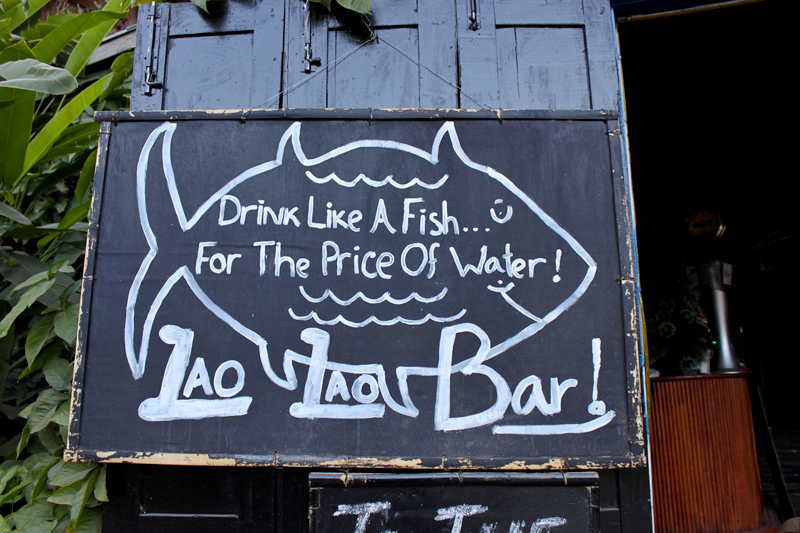 Drink Like A Fish...
For The Price Of Water!
Lao Lao Bar!